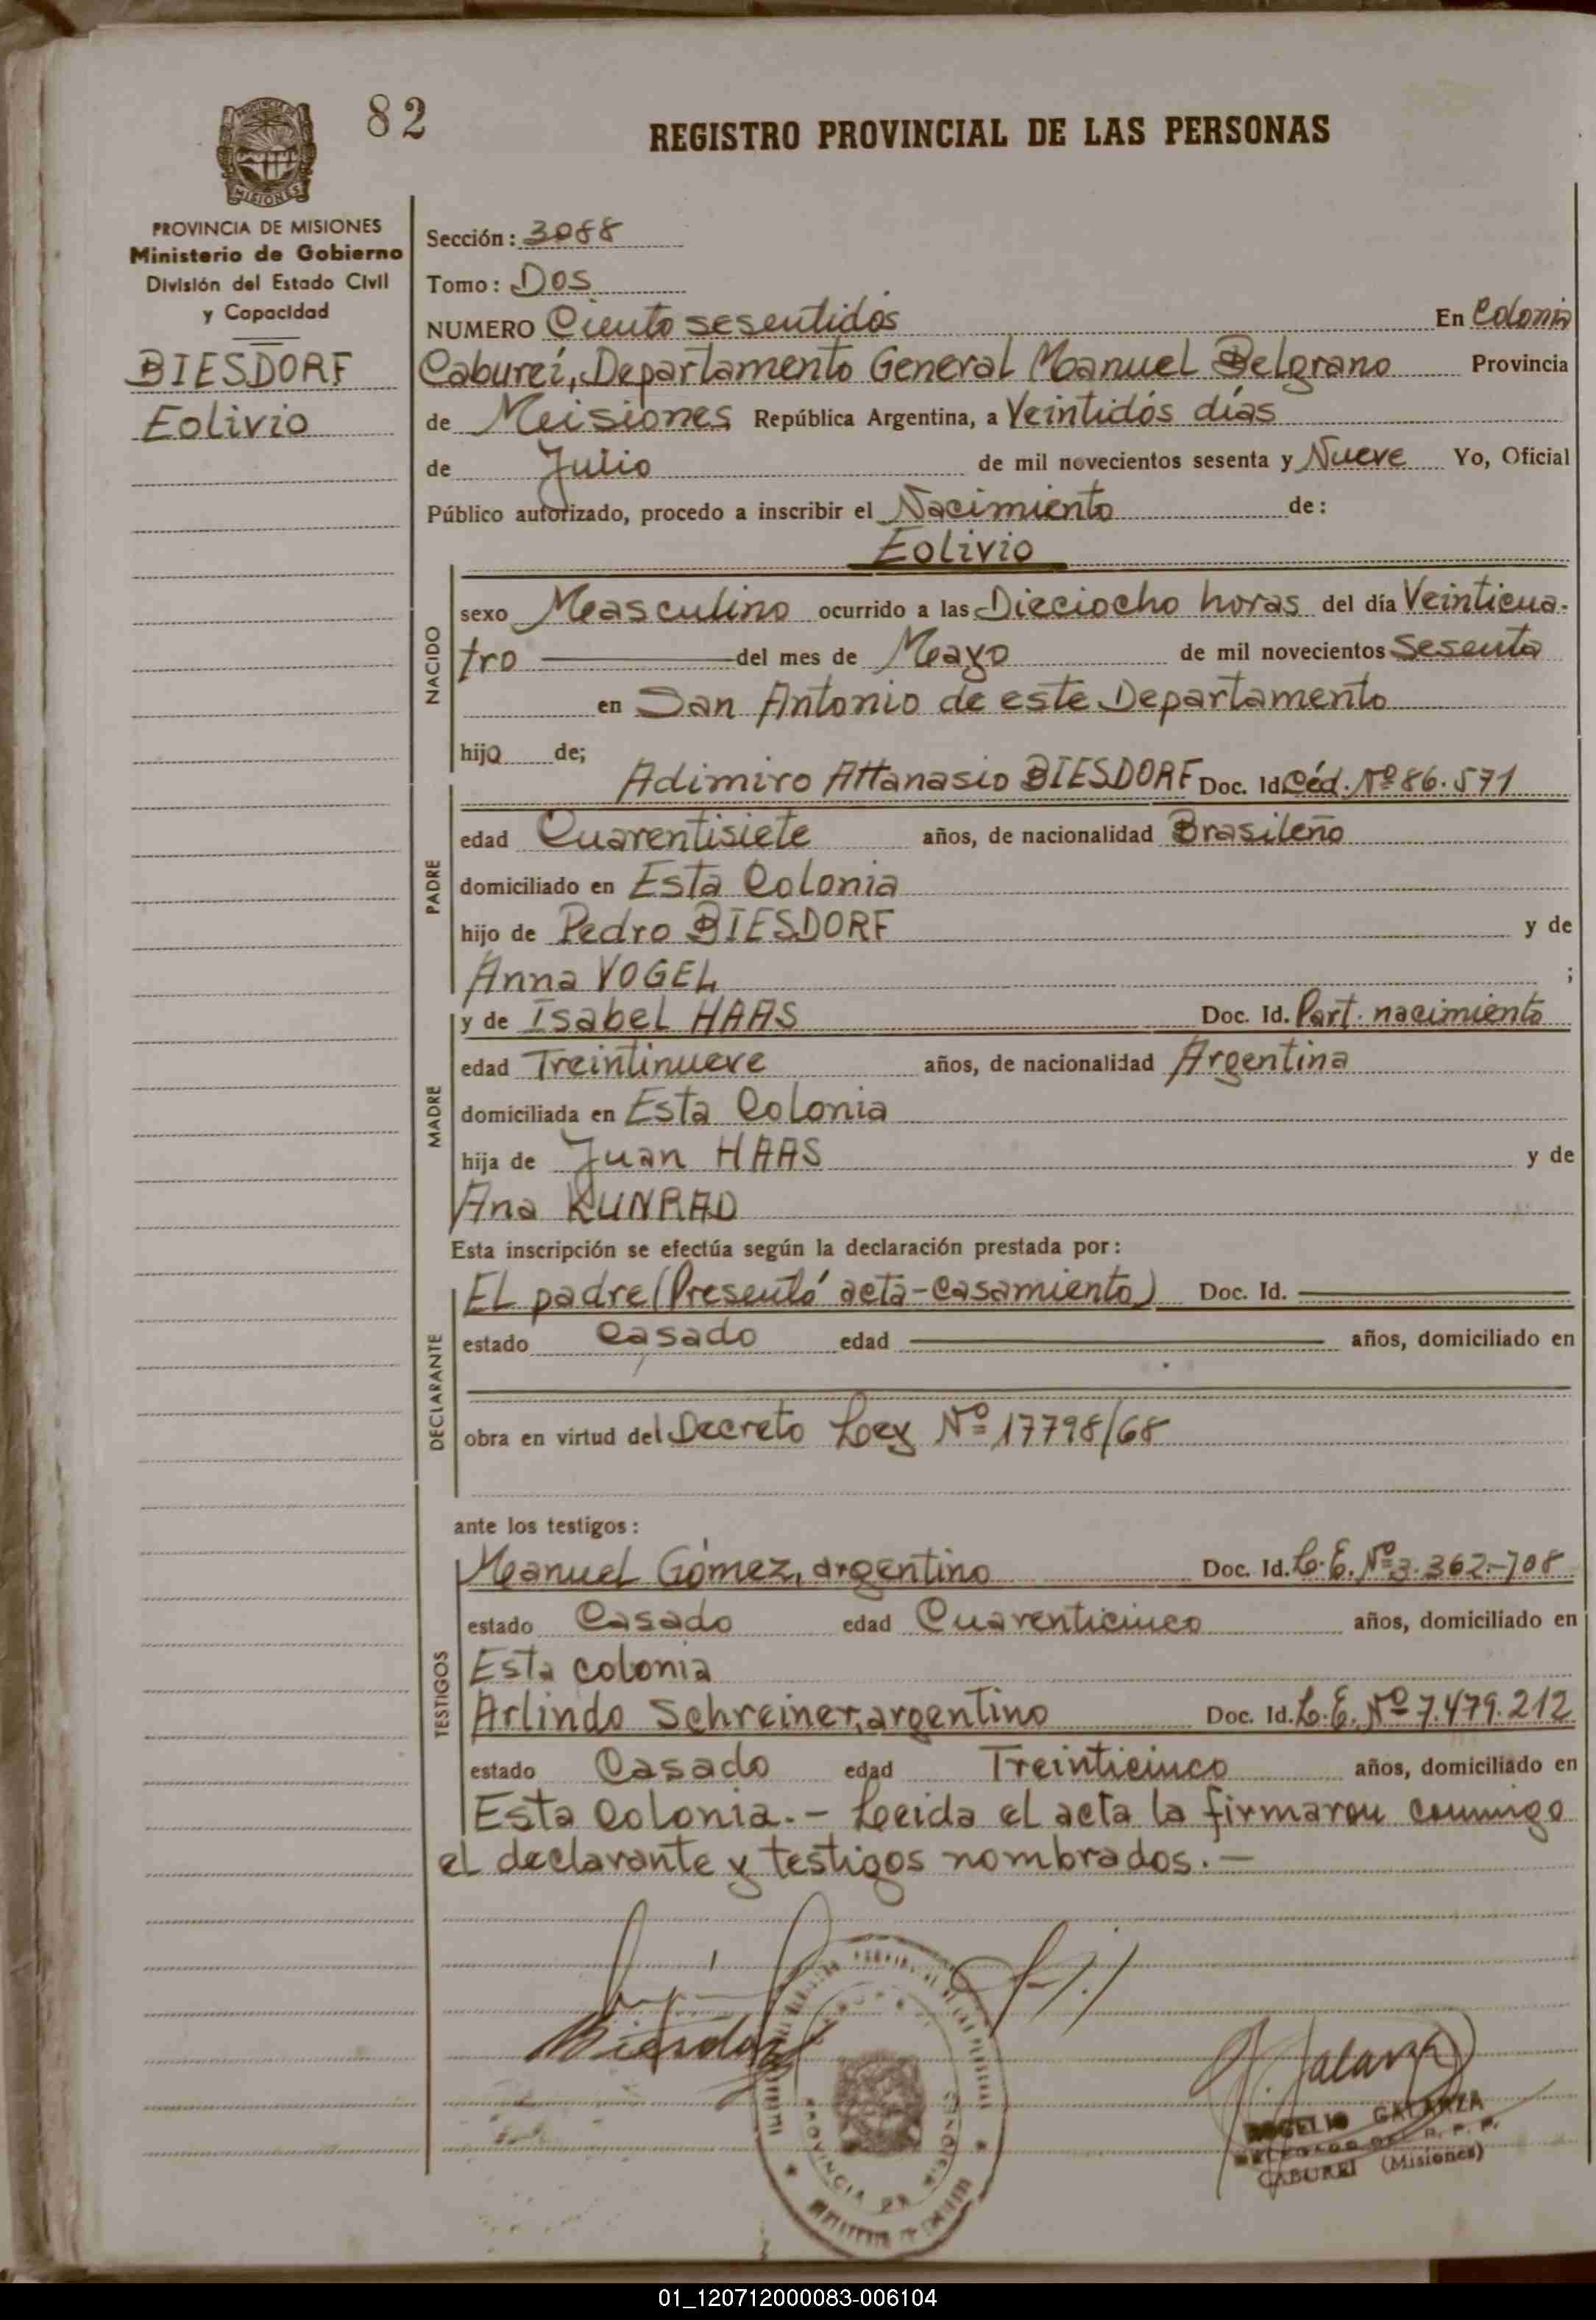 82
REGISTRO PROVINCIAL DE LAS PERSONAS
MISIONES
PROVINCIA DE MISIONES
Ministerio de Gobierno
División del Estado Civil
y Capacidad
BIESDORF
Eolivio
Sección: 3088
Tomo: Dos
NUMERO Ciento sesentidós En Colonia
Cabureí, Departamento General Manuel Belgrano Provincia
de Misiones República Argentina, a Veintidós días
de Julio de mil novecientos sesenta y Nueve Yo, Oficial
Público autorizado, procedo a inscribir el Nacimiento de:
Eolivio
NACIDO
sexo Masculino ocurrido a las Dieciocho horas del día Veinticua-
tro del mes de Mayo de mil novecientos Sesenta
en San Antonio de este Departamento
hijo de;
PADRE
Adimiro Attanasio BIESDORF Doc. Id Céd. Nº 86.571
edad Cuarentisiete años, de nacionalidad Brasileño
domiciliado en Esta Colonia
hijo de Pedro BIESDORF y de
Anna VOGEL ;
MADRE
y de Isabel HAAS Doc. Id. Part. nacimiento
edad Treintinueve años, de nacionalidad Argentina
domiciliada en Esta Colonia
hija de Juan HAAS y de
Ana KUNRAD
Esta inscripción se efectúa según la declaración prestada por:
DECLARANTE
El padre (Presentó acta-casamiento) Doc. Id.
estado Casado edad años, domiciliado en
obra en virtud del Decreto Ley Nº 17798/68
ante los testigos:
TESTIGOS
Manuel Gómez, argentino Doc. Id. L.E. Nº 3.362.708
estado Casado edad Cuarenticinco años, domiciliado en
Esta colonia
Arlindo Schreiner, argentino Doc. Id. L.E. Nº 7.479.212
estado Casado edad Treinticinco años, domiciliado en
Esta Colonia.- Leida el acta la firmaron conmigo
el declarante y testigos nombrados.-
Biesdorf
PROVINCIA DE MISIONES
R. Galarza
ROGELIO GALARZA
DELEGADO DEL R. P. P.
CABUREI (Misiones)
01_120712000083-006104